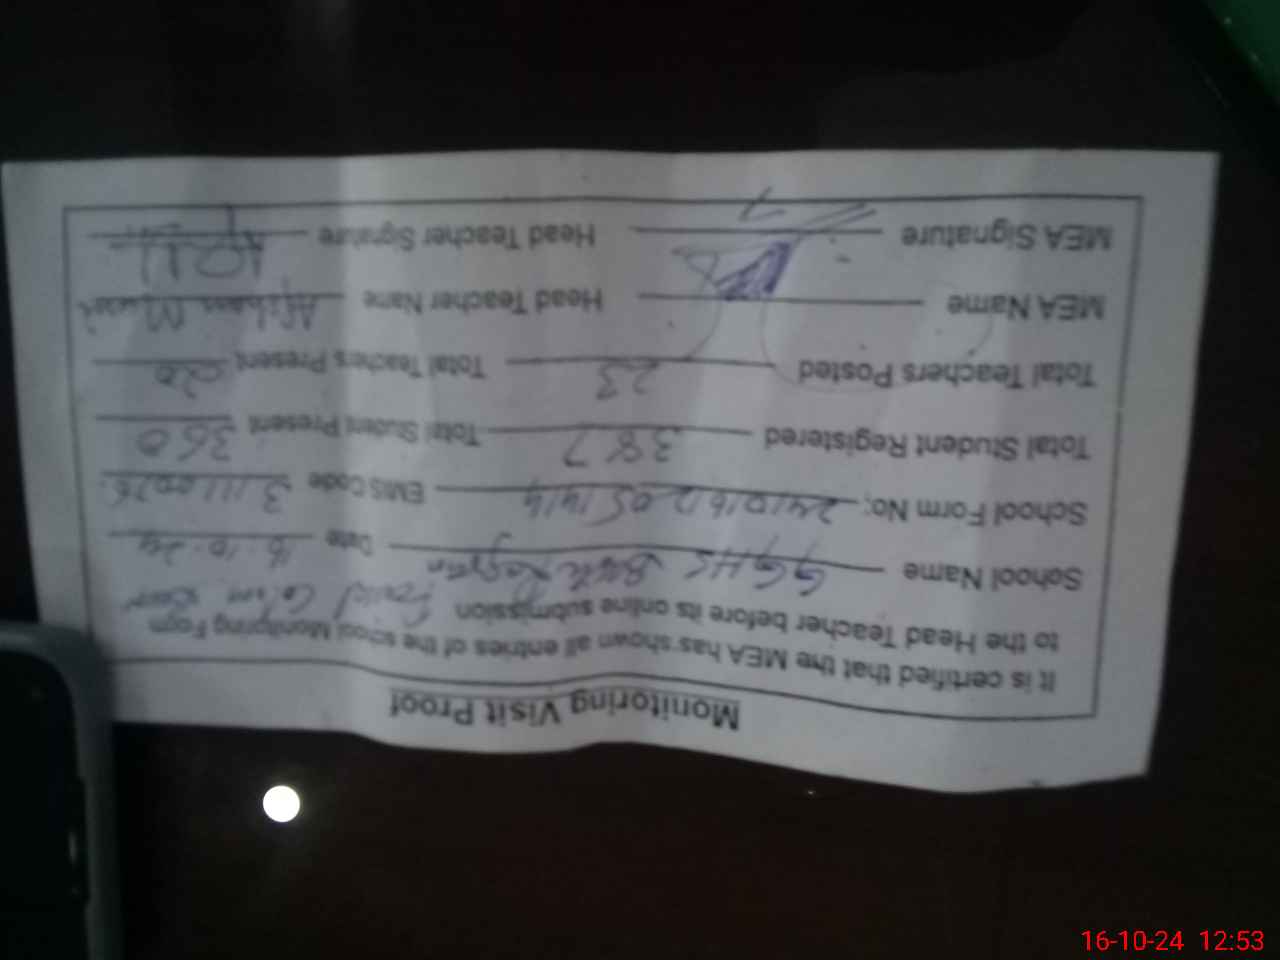 Monitoring Visit Proof
It is certified that the MEA has shown all entries of the school Monitoring Form
to the Head Teacher before its online submission
School Name GGHS Date 16.10.24
School Form No; EMIS Code
Total Student Registered 387 Total Student Present 360
Total Teachers Posted 23 Total Teachers Present 20
MEA Name Head Teacher Name
MEA Signature Head Teacher Signature
16-10-24 12:53